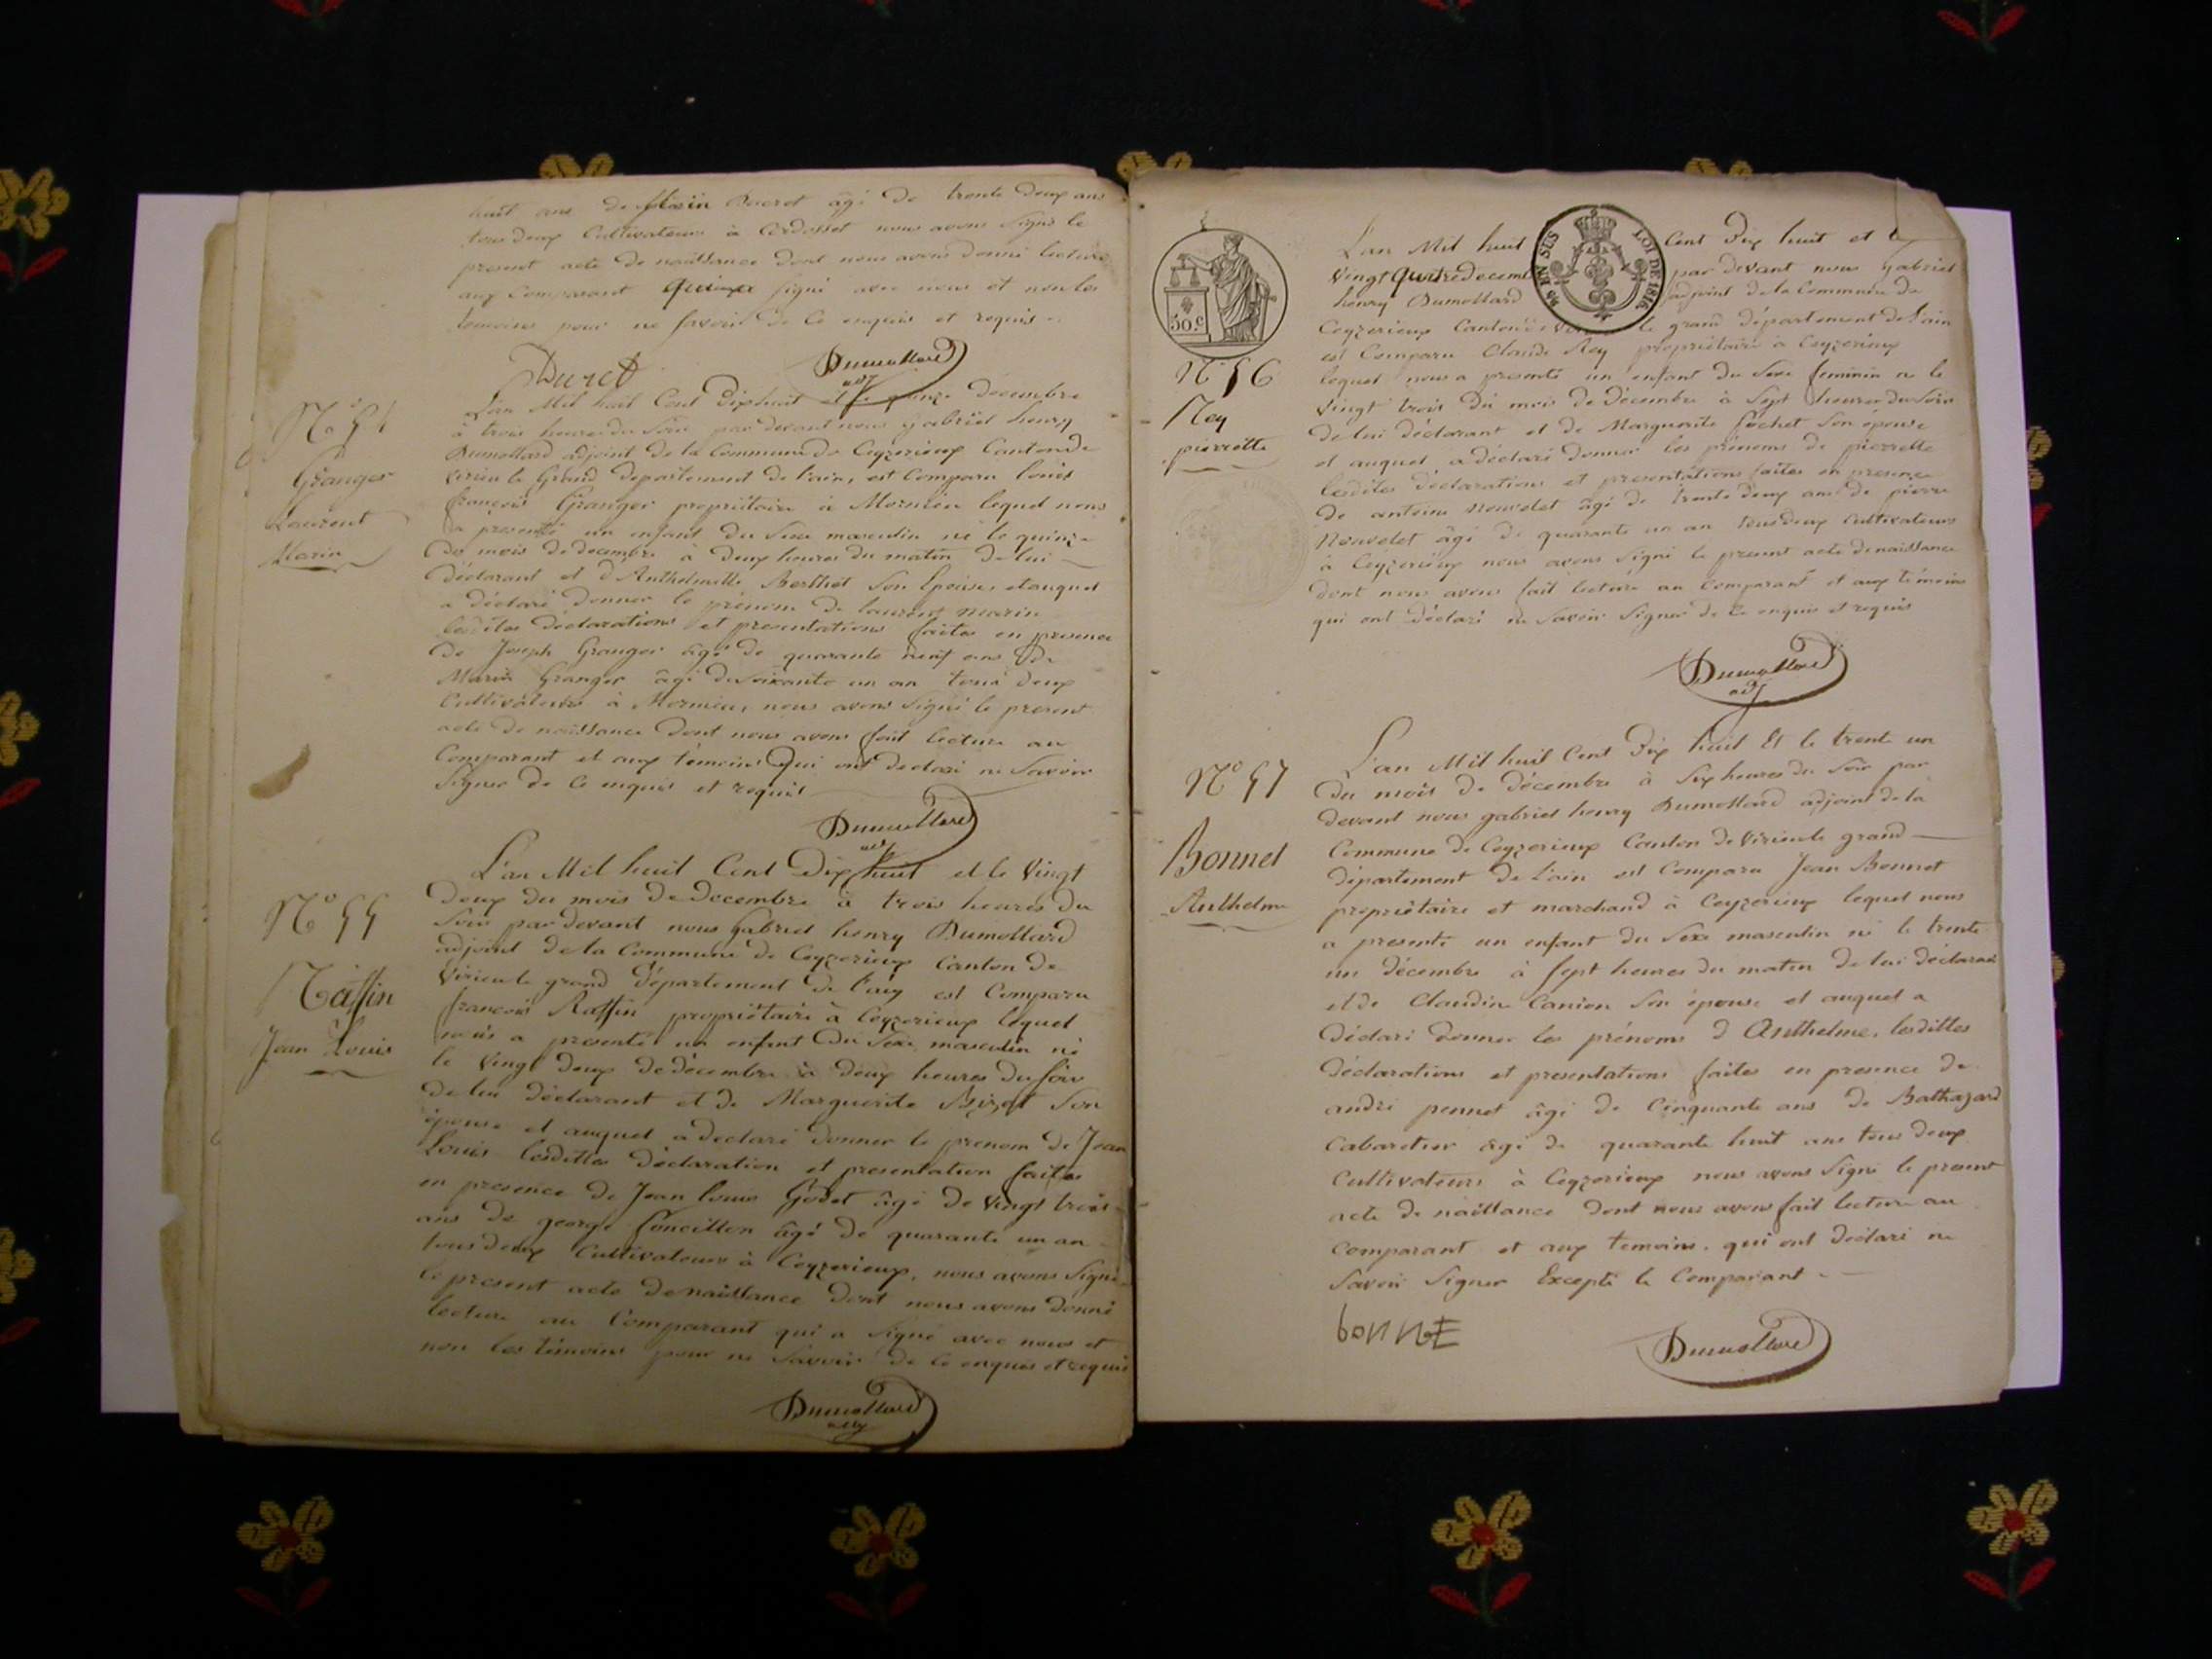 huit ans de Marin Ducret âgé de trente deux ans
tous deux Cultivateurs à nous avons signé le
present acte de naissance dont nous avons donné lecture
aux Comparant qui a signé avec nous et non les
temoins pour ne savoir de ce enquis et requis
Ducret
Dumollard
adj
N° 54
Granger
Laurent
Marin
L'an Mil huit Cent Dixhuit et le quinze décembre
à trois heures du soir par devant nous gabriel henry
Dumollard adjoint de la Commune de Ceyzerieux Canton de
Virieu le Grand département de l'ain, est Comparu louis
françois Granger propriétaire à Mornieu lequel nous
a presenté un enfant du sexe masculin né le quinze
du mois de decembre à deux heures du matin de lui
déclarant et d'Anthelmette Berthet son Epouse, et auquel
a déclaré donner le prénom de laurent marin
lesdites déclarations et presentations faites en presence
de Joseph Granger âgé de quarante neuf ans de
Marin Granger âgé de soixante un an tous deux
Cultivateurs à Mornieu, nous avons signé le present
acte de naissance dont nous avons fait lecture au
Comparant et aux témoins qui ont declaré ne Savoir
Signer de ce enquis et requis
Dumollard
adj
N° 55
Raffin
Jean Louis
L'an Mil huit Cent Dix huit et le Vingt
Deux du mois de Decembre à trois heures du
Soir par devant nous Gabriel henry Dumollard
adjoint de la Commune de Ceyzerieux Canton de
Virieu le grand département de l'ain est Comparu
françois Raffin propriétaire à Ceyzerieux lequel
nous a presenté un enfant du Sexe masculin né
le Vingt deux de décembre à deux heures du soir
de lui déclarant et de Marguerite Bizet Son
épouse et auquel a declaré donner le prenom de Jean
Louis lesdittes déclaration et presentation faites
en presence de Jean louis Godet âgé de vingt trois
ans de george foncillon âgé de quarante un an
tous deux Cultivateurs à Ceyzerieux, nous avons Signé
le présent acte de naissance dont nous avons donné
lecture au Comparant qui a Signé avec nous et
non les témoins pour ne Savoir de ce enquis et requis
Dumollard
adj
30.c
EN SUS LOI DE 1816
N° 56
Rey
pierrette
L'an Mil huit Cent Dix huit et le
Vingt quatre decemb par devant nous gabriel
henry Dumollard adjoint de la Commune de
Ceyzerieux Canton de Vi le grand département de l'ain
est Comparu Claude Rey propriétaire à Ceyzerieux
lequel nous a presenté un enfant du Sexe feminin né le
Vingt trois du mois de Décembre à Sept heures du Soir
de lui déclarant et de Marguerite Son épouse
et auquel a déclaré donner les prénoms de pierrette
lesdites déclarations et presentations faites en presence
de antoine nouvelet âgé de trente deux ans de pierre
nouvelet âgé de quarante un an tous deux Cultivateurs
à Ceyzerieux nous avons Signé le present acte de naissance
dont nous avons fait lecture au Comparant et aux témoins
qui ont déclaré ne Savoir Signer de Ce enquis et requis
Dumollard
adj
N° 57
Bonnet
Anthelme
L'an Mil huit Cent Dix huit Et le trente un
du mois de décembre à Six heures du Soir par
devant nous gabriel henry Dumollard adjoint de la
Commune de Ceyzerieux Canton de Virieu le grand
département de l'ain est Comparu Jean Bonnet
propriétaire et marchand à Ceyzerieux lequel nous
a presenté un enfant du Sexe masculin né le trente
un décembre à sept heures du matin de lui déclarant
et de Claudine Canion Son épouse et auquel a
déclaré donner les prénoms d'Anthelme, lesdittes
déclarations et presentations faites en presence de
andré pennet âgé de Cinquante ans de Balthazard
Cabaretier âgé de quarante huit ans tous deux
Cultivateurs à Ceyzerieux nous avons Signé le present
acte de naissance dont nous avons fait lecture au
Comparant et aux temoins. qui ont déclaré ne
Savoir Signer Excepté le Comparant
bonnE
Dumollard